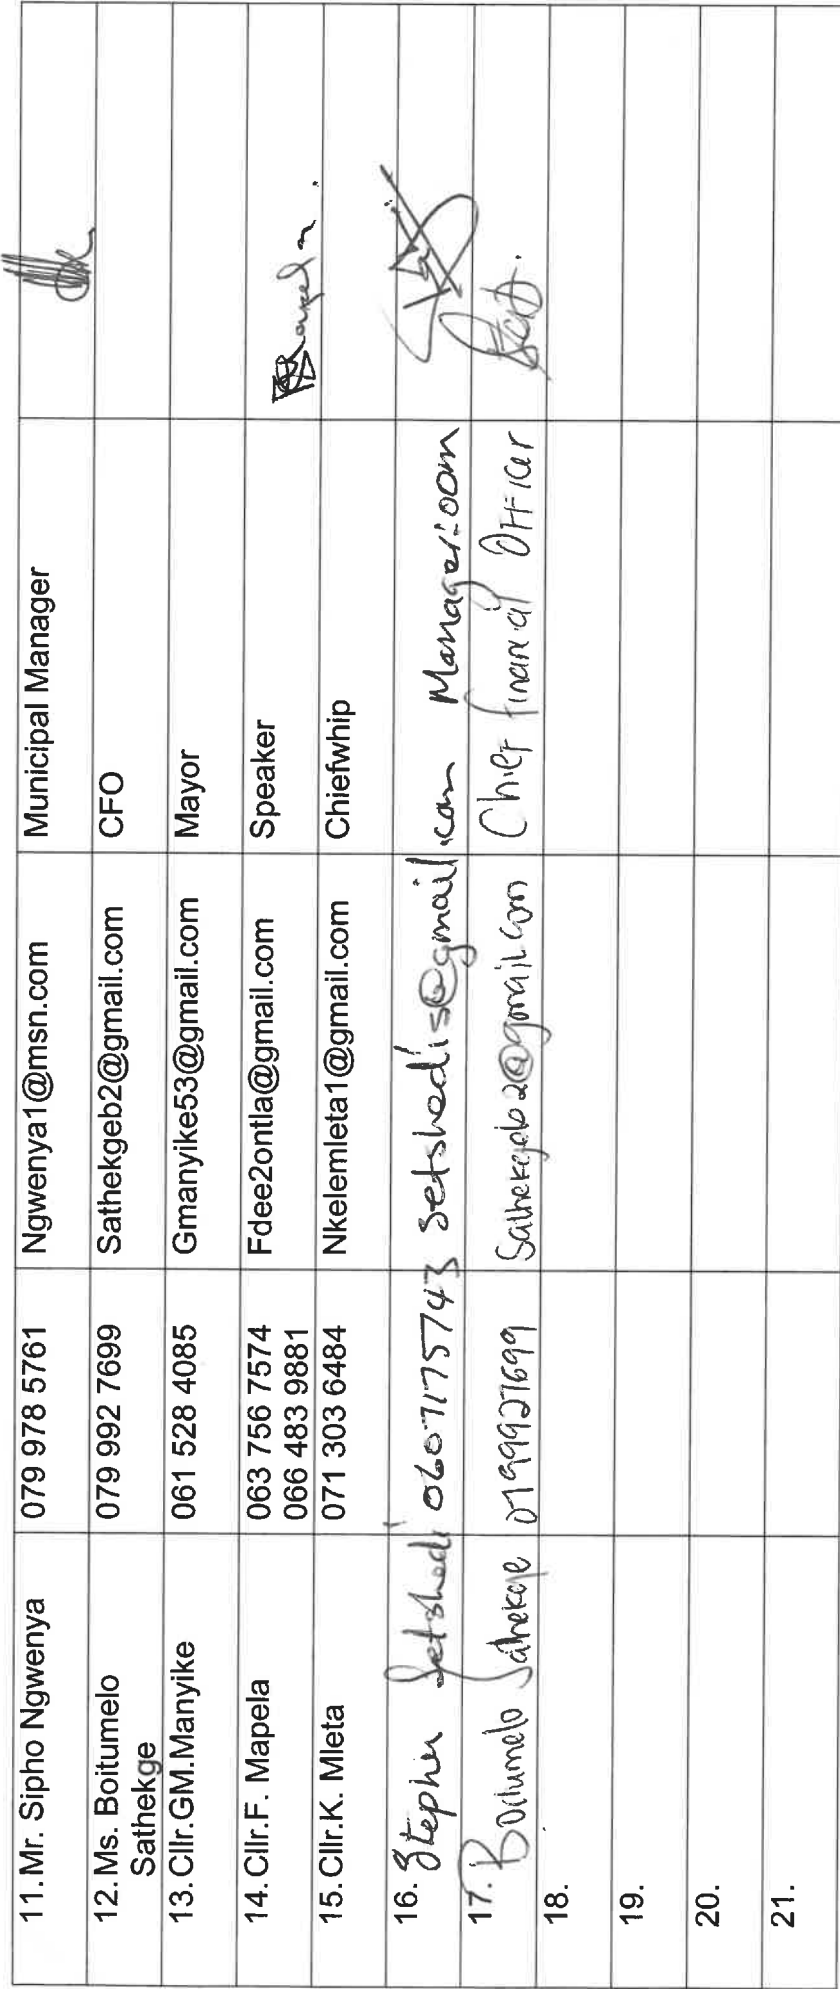 11. Mr. Sipho Ngwenya 079 978 5761 Ngwenya1@msn.com Municipal Manager
12. Ms. Boitumelo 079 992 7699 Sathekgeb2@gmail.com CFO
Sathekge
13. Cllr.GM.Manyike 061 528 4085 Gmanyike53@gmail.com Mayor
14. Cllr.F. Mapela 063 756 7574 Fdee2ontla@gmail.com Speaker
066 483 9881
15. Cllr.K. Mleta 071 303 6484 Nkelemleta1@gmail.com Chiefwhip
16. Stephen Setshedi 0607175743 setshedis@gmail.com Manager:OOM
17. Boitumelo Sathekge 0799927699 Sathekgeb2@gmail.com Chief Financial Officer
18.
19.
20.
21.